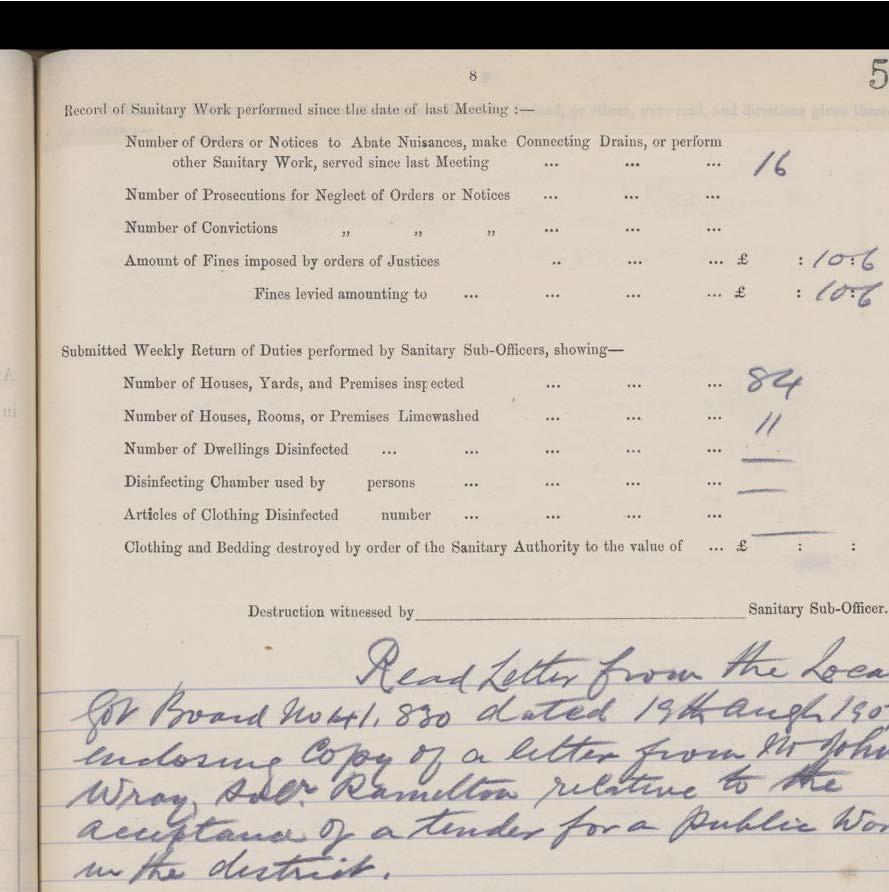 8
5
Record of Sanitary Work performed since the date of last Meeting :—
Number of Orders or Notices to Abate Nuisances, make Connecting Drains, or perform
other Sanitary Work, served since last Meeting ... ... ... 16
Number of Prosecutions for Neglect of Orders or Notices ... ... ...
Number of Convictions „ „ „ ... ... ...
Amount of Fines imposed by orders of Justices .. ... ... £ : 10:6
Fines levied amounting to ... ... ... ... £ : 10:6
Submitted Weekly Return of Duties performed by Sanitary Sub-Officers, showing—
Number of Houses, Yards, and Premises inspected ... ... ... 84
Number of Houses, Rooms, or Premises Limewashed ... ... ... 11
Number of Dwellings Disinfected ... ... ... ... ... —
Disinfecting Chamber used by persons ... ... ... ... —
Articles of Clothing Disinfected number ... ... ... ... —
Clothing and Bedding destroyed by order of the Sanitary Authority to the value of ... £ : :
Destruction witnessed by Sanitary Sub-Officer.
Read Letter from the Loca
Gov Board No 41,830 dated 19th Augt 190
enclosing Copy of a letter from Mr John
Wray, Solr. Ramelton relative to the
acceptance of a tender for a Public Wor
in the district.